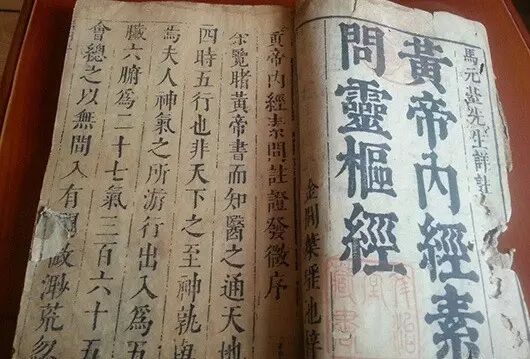 馬元臺先生詳註
黃帝內經素
問靈樞經
金閶葉
藏書
黃帝內經素問註證發微序
余覽睹黃帝書而知醫之通天地
四時五行也非天下之至神孰
焉夫人神氣之所游行出入爲五
臟六腑爲二十七氣三百六十五
會總之以無間入有間微渺荒忽